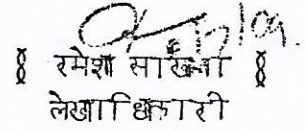 रमेश साखला
लेखाधिकारी